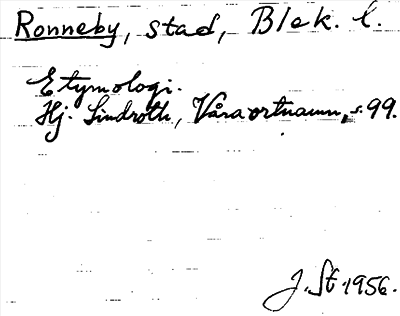 Ronneby, stad, Blek. l.
Etymologi.
Hj. Lindroth, Våra ortnamn, s. 99.
J. St. 1956.